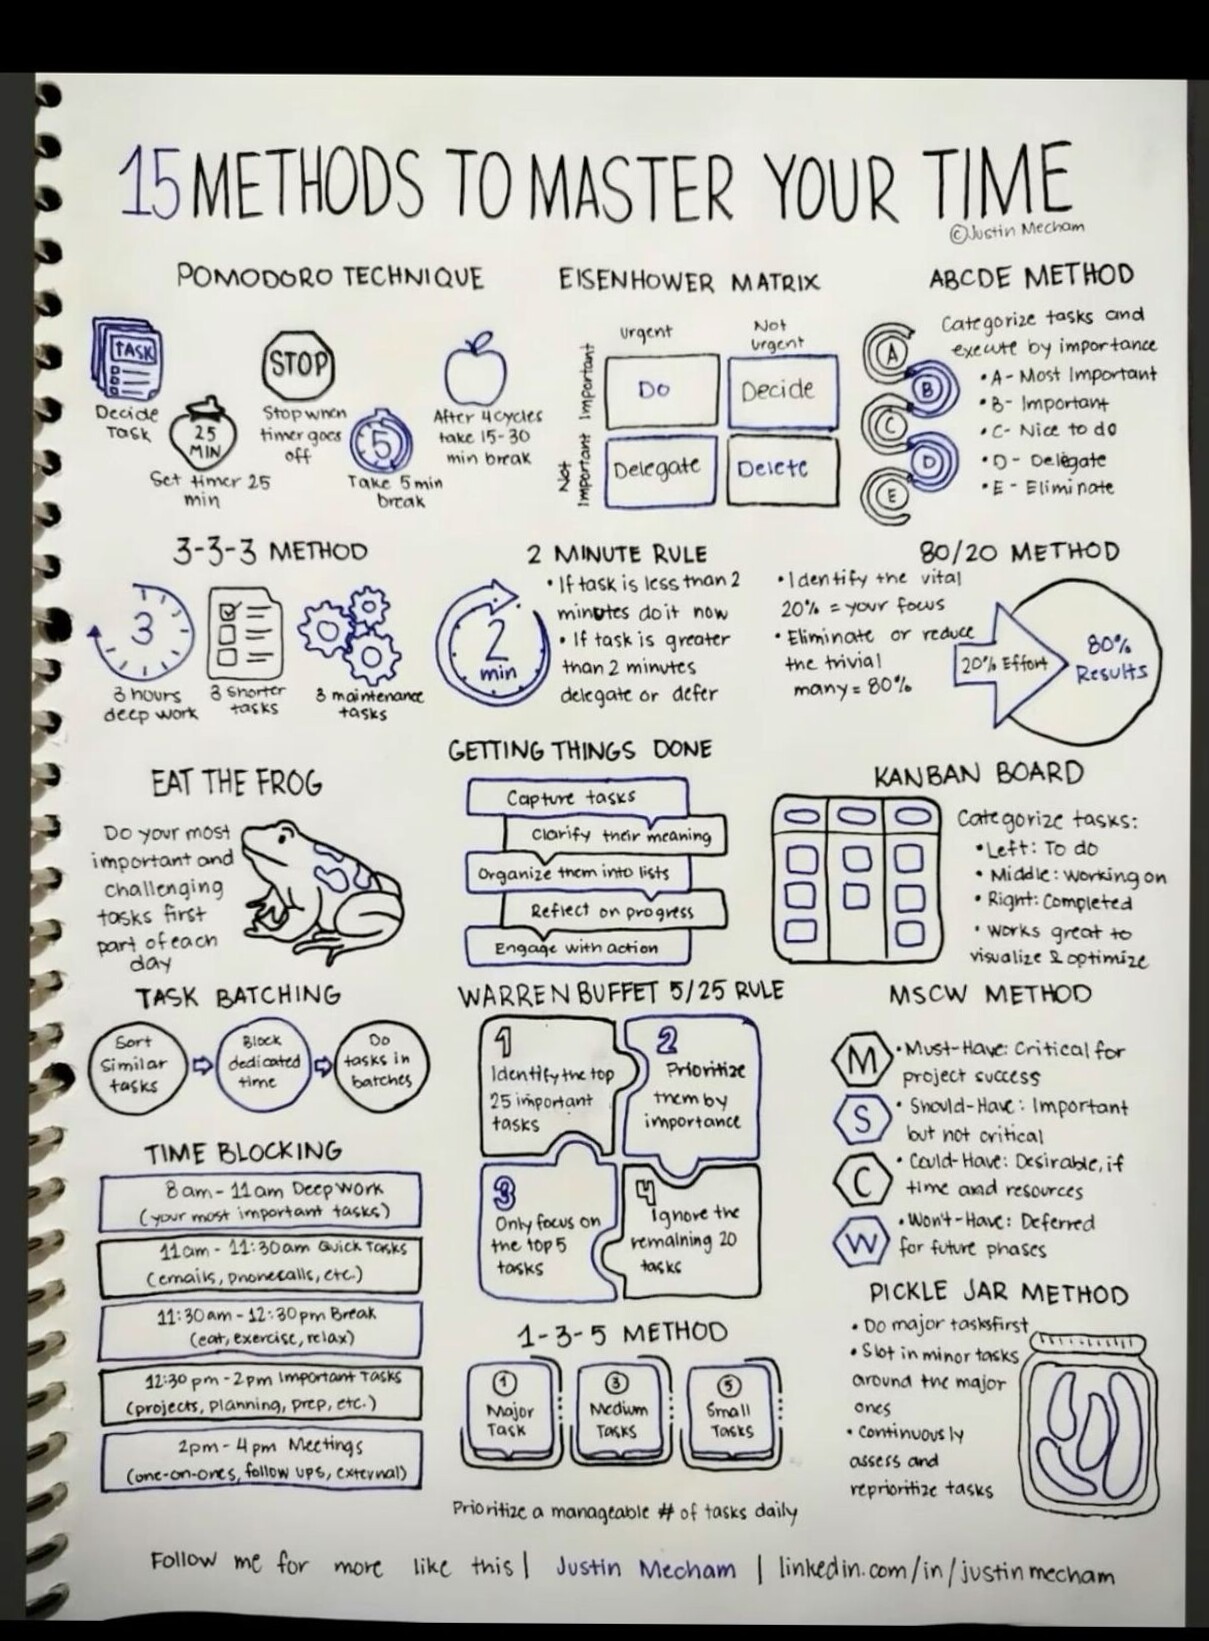 15 METHODS TO MASTER YOUR TIME
©Justin Mecham
POMODORO TECHNIQUE
TASK
Decide
Task
25
MIN
Set timer 25
min
STOP
Stop when
timer goes
off
5
Take 5 min
break
After 4 cycles
take 15-30
min break
EISENHOWER MATRIX
Urgent
Not
Urgent
Important
Not
Important
Do
Decide
Delegate
Delete
ABCDE METHOD
Categorize tasks and
execute by importance
A
B
C
D
E
• A - Most Important
• B - Important
• C - Nice to do
• D - Delegate
• E - Eliminate
3-3-3 METHOD
3
3 hours
deep work
3 shorter
tasks
3 maintenance
tasks
2 MINUTE RULE
2
min
• If task is less than 2
minutes do it now
• If task is greater
than 2 minutes
delegate or defer
80/20 METHOD
• Identify the vital
20% = your focus
• Eliminate or reduce
the trivial
many = 80%
20% Effort
80%
Results
EAT THE FROG
Do your most
important and
challenging
tasks first
part of each
day
GETTING THINGS DONE
Capture tasks
Clarify their meaning
Organize them into lists
Reflect on progress
Engage with action
KANBAN BOARD
Categorize tasks:
• Left: To do
• Middle: Working on
• Right: Completed
• Works great to
visualize & optimize
TASK BATCHING
Sort
Similar
tasks
Block
dedicated
time
Do
tasks in
batches
WARREN BUFFET 5/25 RULE
1
Identify the top
25 important
tasks
2
Prioritize
them by
importance
3
Only focus on
the top 5
tasks
4
Ignore the
remaining 20
tasks
MSCW METHOD
M
• Must-Have: Critical for
project success
S
• Should-Have: Important
but not critical
C
• Could-Have: Desirable, if
time and resources
W
• Won't-Have: Deferred
for future phases
TIME BLOCKING
8am - 11am Deep Work
(your most important tasks)
11am - 11:30am Quick Tasks
(emails, phonecalls, etc.)
11:30am - 12:30pm Break
(eat, exercise, relax)
12:30pm - 2pm Important Tasks
(projects, planning, prep, etc.)
2pm - 4pm Meetings
(one-on-ones, follow ups, external)
1-3-5 METHOD
1
Major
Task
3
Medium
Tasks
5
Small
Tasks
Prioritize a manageable # of tasks daily
PICKLE JAR METHOD
• Do major tasks first
• Slot in minor tasks
around the major
ones
• Continuously
assess and
reprioritize tasks
Follow me for more like this | Justin Mecham | linkedin.com/in/justinmecham